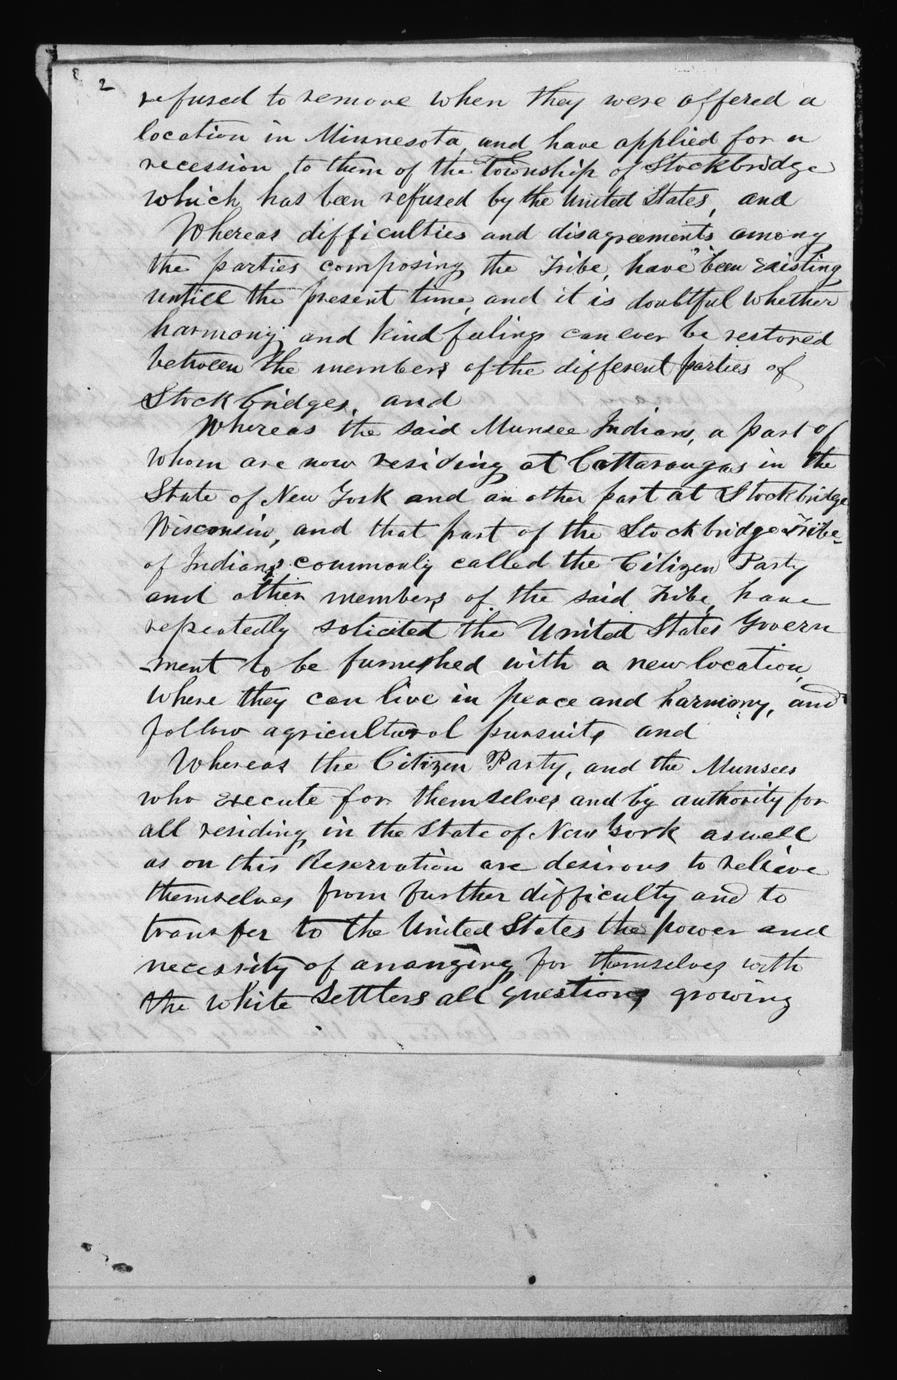 2
refused to remove when they were offered a
location in Minnesota, and have applied for a
recession to them of the Township of Stockbridge
which has been refused by the United States, and
Whereas difficulties and disagreements among
the parties composing the Tribe, have been existing
untill the present time, and it is doubtful whether
harmony and kind feelings can ever be restored
between the members of the different parties of
Stockbridges, and
Whereas the said Munsee Indians, a part of
whom are now residing at Cattaraugas in the
State of New York and an other part at Stockbridge
Wisconsin, and that part of the Stockbridge Tribe
of Indians commonly called the Citizen Party
and other members of the said Tribe, have
repeatedly solicited the United States Govern
-ment to be furnished with a new location,
where they can live in peace and harmony, and
follow agricultural pursuits and
Whereas the Citizen Party, and the Munsees
who execute for themselves and by authority for
all residing in the State of New York as well
as on this Reservation are desirous to relieve
themselves from further difficulty and to
transfer to the United States the power and
necessity of arranging for themselves with
the White Settlers all questions growing